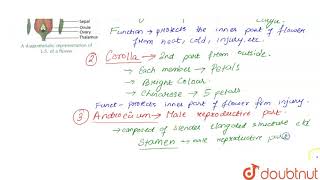 Sepal
Ovule
Ovary
Thalamus
A diagrammatic representation of
L.S. of a flower
Function → protects the inner part of flower
from heat, cold, injury, etc.
② Corolla → 2nd part from outside.
→ Each member → Petals
→ Bright Colour
→ Chinarose → 5 petals
Funct- protects inner part of flower from injury.
③ Androecium → Male reproductive part.
→ composed of slender elongated structure cld
Stamen → male reproductive part
doubtnut